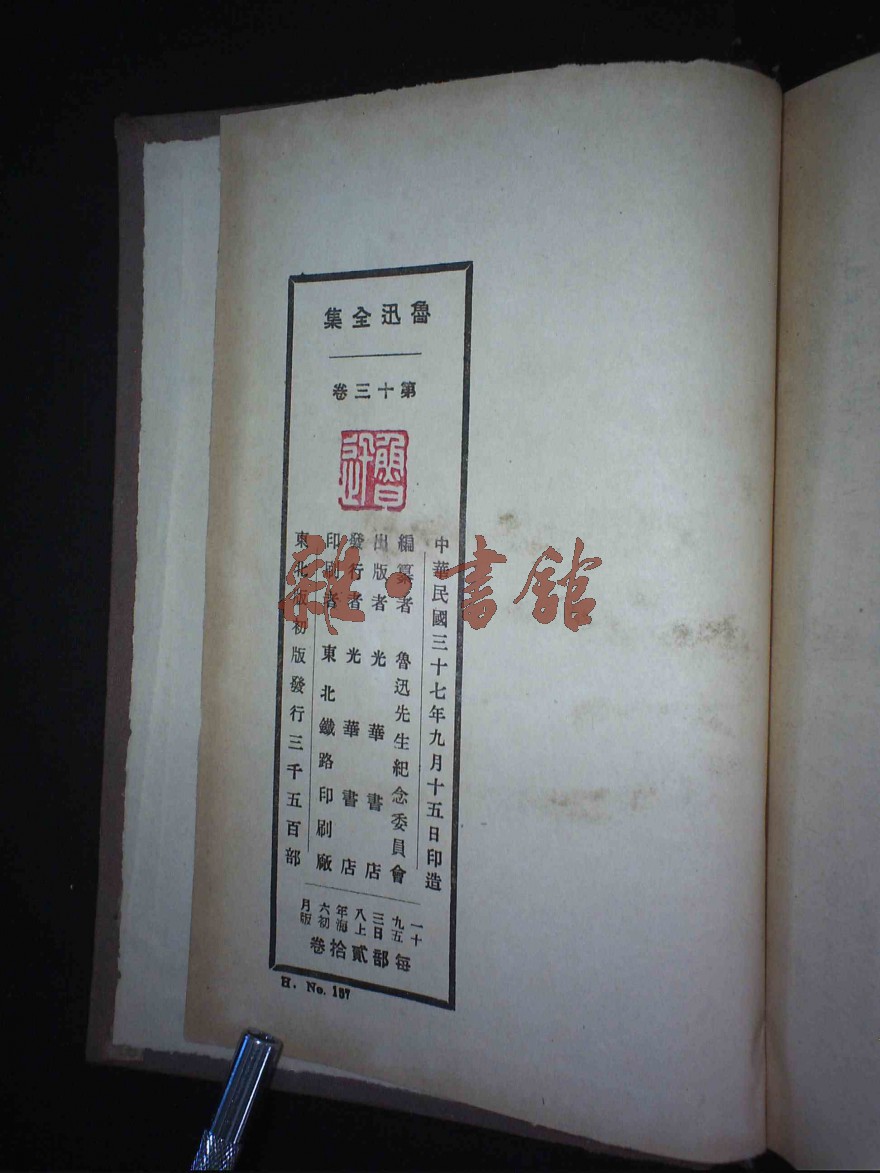 魯迅全集
第十三卷
魯迅
中華民國三十七年九月十五日印造
編纂者 魯迅先生紀念委員會
出版者 光華書店
發行者 光華書店
印刷者 東北鐵路印刷廠
東北版初版發行三千五百部
一九三八年六月
十五日上海初版
每部貳拾卷
H. No. 157
雜·書館